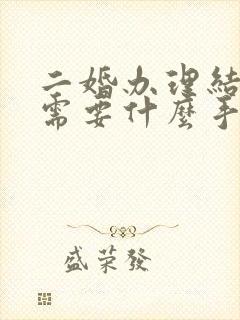 二婚办理结
需要什麼手
盛荣發